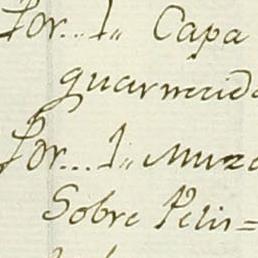 Por... 1,, Capa
guarnecida
Por... 1,, Muze
Sobre Pelis=